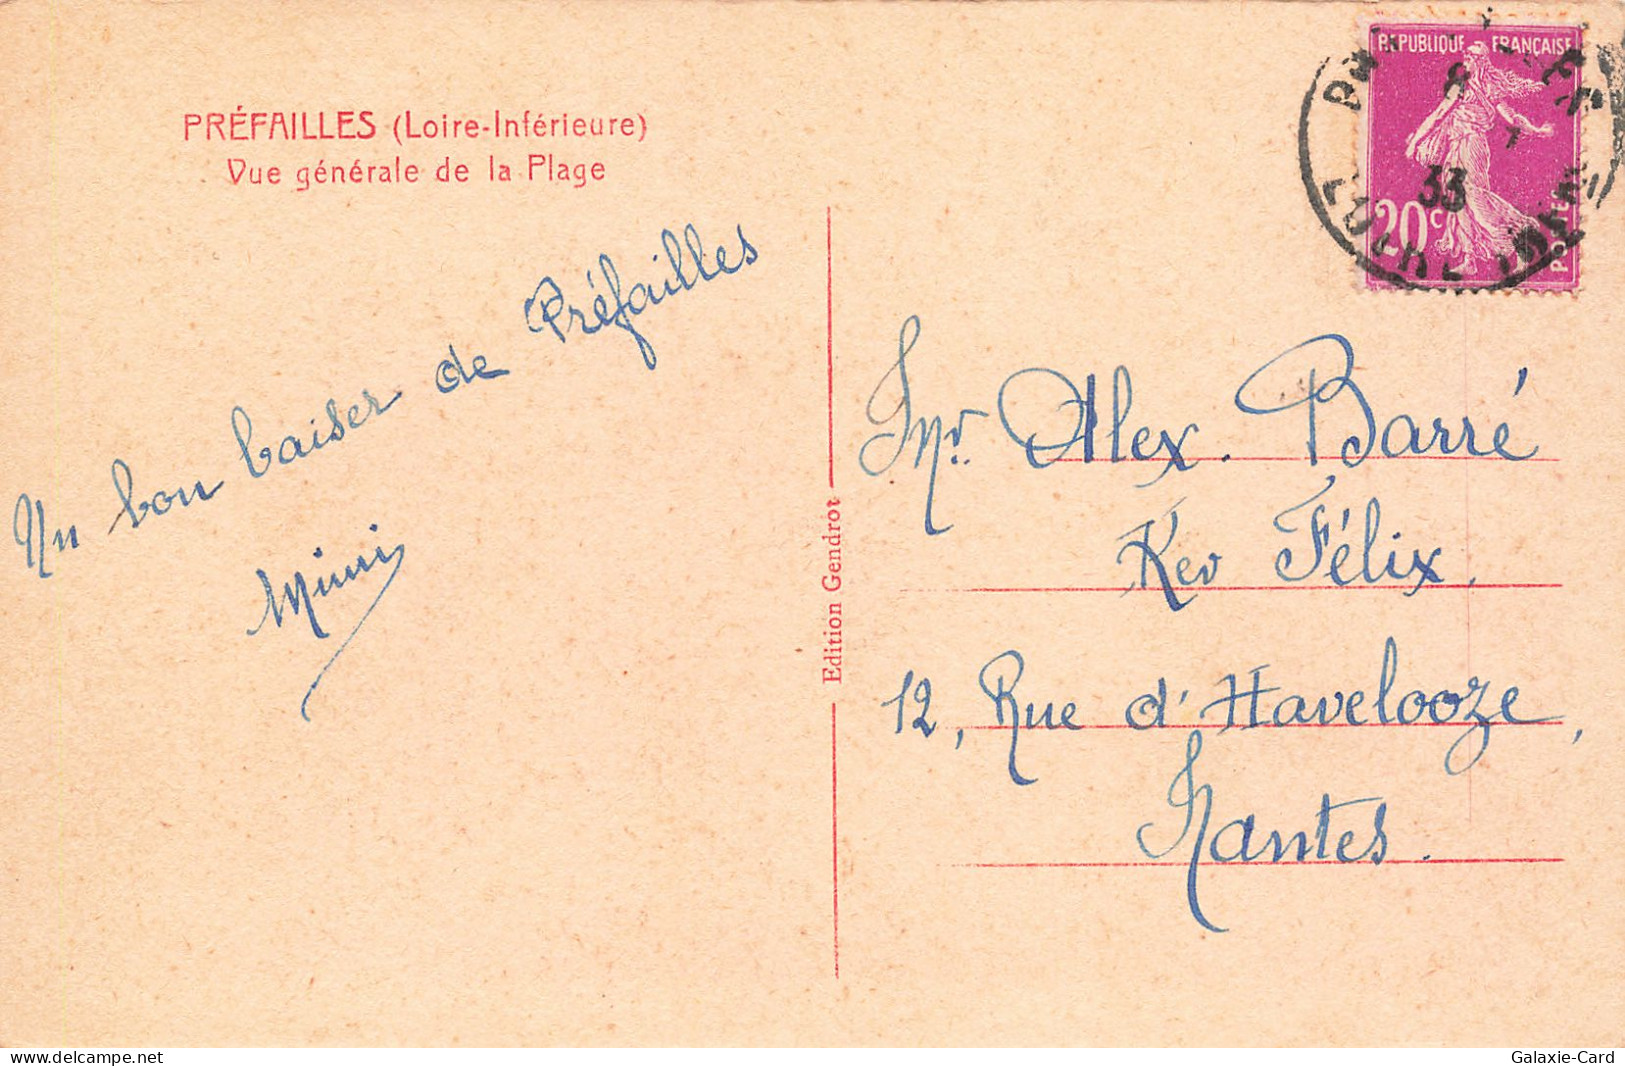 PRÉFAILLES (Loire-Inférieure)
Vue générale de la Plage
Un bon baiser de Préfailles
Mimi
Edition Gendrot
REPUBLIQUE FRANÇAISE
20c
POSTES
8
7
33
LOIRE INFRE
Mr. Alex. Barré
Ker Félix,
12, Rue d'Havelooze,
Nantes.
delcampe.net
Galaxie-Card